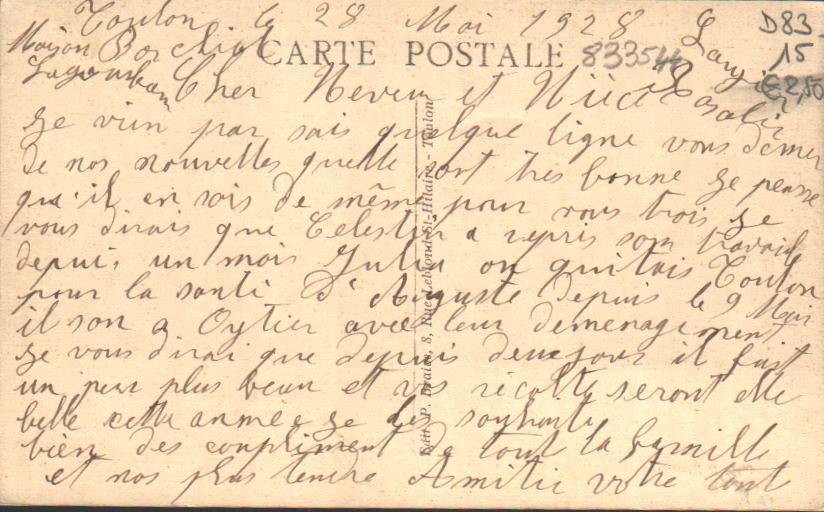 Toulon le 28 Mai 1928
D83
15
€2,50
CARTE POSTALE 833544
Maison
Cher Neveu et Niice Rosalie
Je vien par sais quelque ligne vous dömer
de nos nouvelles quelle sont tres bonne Je pense
qu'il en sois de même pour vous trois Je
vous dirais que Celestin a repris son travail
depuis un mois Julia on quittais Toulon
pour la santi d'Auguste depuis le 9 Mai
il son a Oytier avec leur demenagement
Je vous dirai que depuis deux jours il fait
un peu plus beau et vos récolte seront elle
belle cette anmée Je les souhaite
bien des compliment de tout la famille
et nos plus tendre Amitie votre tout
Edit. P. 8, Rue Leblond-St-Hilaire, - Toulon